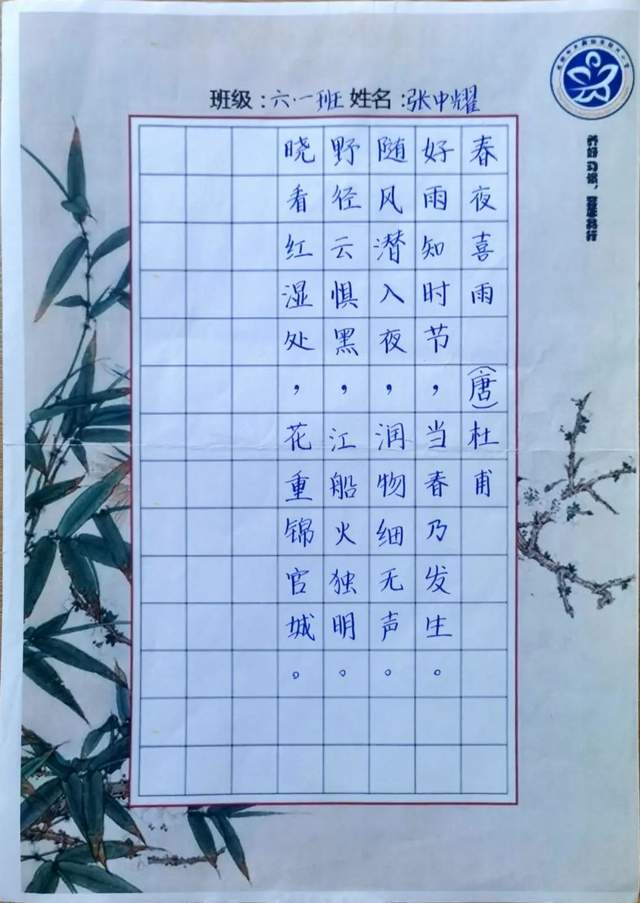 班级：六.一班 姓名：张中耀
春夜喜雨 (唐)杜甫
好雨知时节，当春乃发生。
随风潜入夜，润物细无声。
野径云惧黑，江船火独明。
晓看红湿处，花重锦官城。